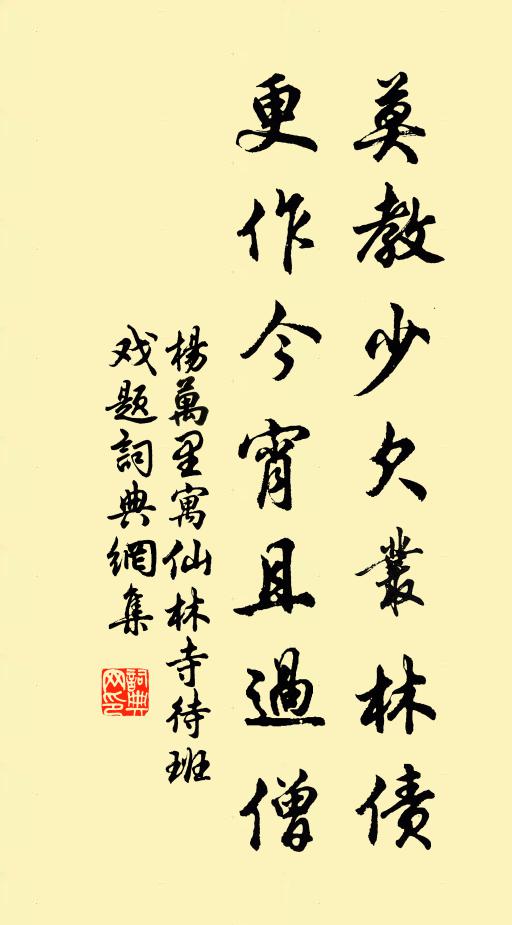 莫教少欠叢林債
更作今宵且過僧
楊萬里寓仙林寺待班
戏题詞典網集
詞典
网印